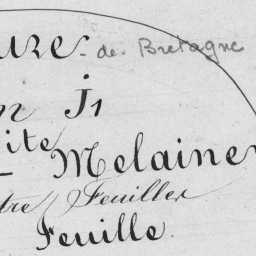 ure de Bretagne
n J1
ite
Melaine
tre Feuilles
Feuille.